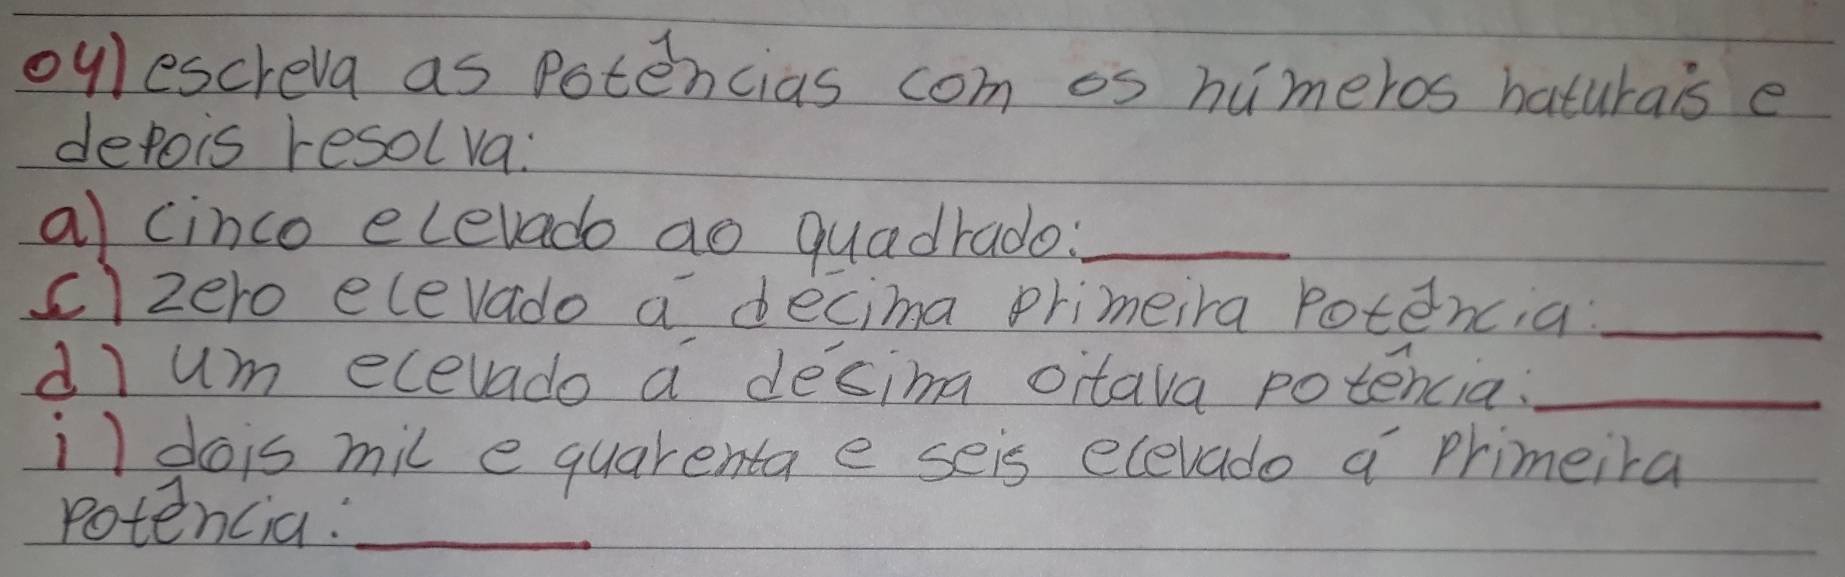 04) escreva as potências com os números naturais e
depois resolva:
a) cinco elevado ao quadrado:______
c) zero elevado á décima primeira potência:______
d) um elevado á décima oitava potência:______
i) dois mil e quarenta e seis elevado á primeira
potência:______